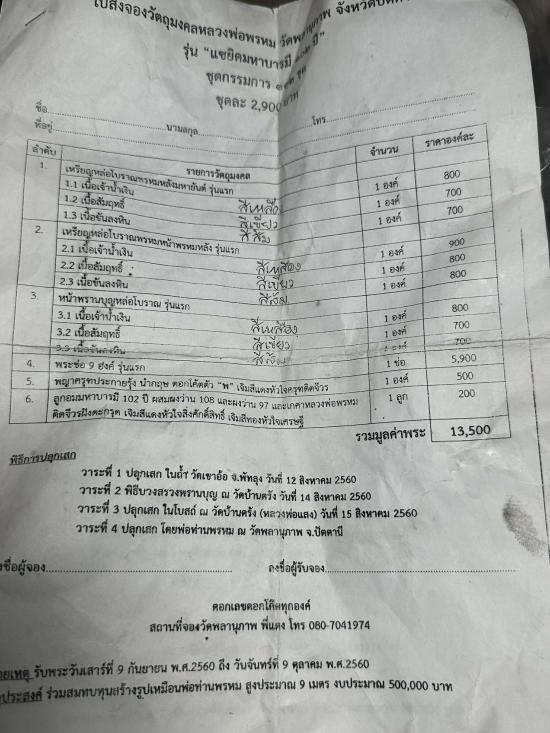 ใบสั่งจองวัตถุมงคลหลวงพ่อพรหม วัดพลานุภาพ
รุ่น "แซยิดมหาบารมี ๑๐๒ ปี"
ชุดกรรมการ
ชุดละ 2,900 บาท
ชื่อ นามสกุล โทร
ที่อยู่
ลำดับ รายการวัตถุมงคล จำนวน ราคาองค์ละ
1. เหรียญหล่อโบราณพรหมหลังมหายันต์ รุ่นแรก
1.1 เนื้อเจ้าน้ำเงิน สีเหลือง 1 องค์ 800
1.2 เนื้อสัมฤทธิ์ สีเขียว 1 องค์ 700
1.3 เนื้อขันลงหิน สีส้ม 1 องค์ 700
2. เหรียญหล่อโบราณพรหมหน้าพรหมหลัง รุ่นแรก
2.1 เนื้อเจ้าน้ำเงิน สีเหลือง 1 องค์ 900
2.2 เนื้อสัมฤทธิ์ สีเขียว 1 องค์ 800
2.3 เนื้อขันลงหิน สีส้ม 1 องค์ 800
3. หน้าพรานบุญหล่อโบราณ รุ่นแรก
3.1 เนื้อเจ้าน้ำเงิน สีเหลือง 1 องค์ 800
3.2 เนื้อสัมฤทธิ์ สีเขียว 1 องค์ 700
3.3 เนื้อขันลงหิน สีส้ม 1 องค์ 700
4. พระช่อ 9 องค์ รุ่นแรก 1 ช่อ 5,900
5. พญาครุฑประกายรุ้ง นำฤกษ ตอกโค๊ตตัว "พ" เจิมสีแดงหัวใจครุฑติดจีวร 1 องค์ 500
6. ลูกอมมหาบารมี 102 ปี ผสมผงว่าน 108 และผงว่าน 97 และเกศาหลวงพ่อพรหม 1 ลูก 200
ติดจีวรฝังตะกรุด เจิมสีแดงหัวใจสิ่งศักดิ์สิทธิ์ เจิมสีทองหัวใจเศรษฐี
รวมมูลค่าพระ 13,500
พิธีการปลุกเสก
วาระที่ 1 ปลุกเสก ในถ้ำ วัดเขาอ้อ จ.พัทลุง วันที่ 12 สิงหาคม 2560
วาระที่ 2 พิธีบวงสรวงพรานบุญ ณ วัดบ้านตรัง วันที่ 14 สิงหาคม 2560
วาระที่ 3 ปลุกเสก ในโบสถ์ ณ วัดบ้านตรัง (หลวงพ่อแสง) วันที่ 15 สิงหาคม 2560
วาระที่ 4 ปลุกเสก โดยพ่อท่านพรหม ณ วัดพลานุภาพ จ.ปัตตานี
งชื่อผู้จอง ลงชื่อผู้รับจอง
ตอกเลขตอกโค๊ตทุกองค์
สถานที่จองวัดพลานุภาพ พี่แดง โทร 080-7041974
ายเหตุ รับพระวันเสาร์ที่ 9 กันยายน พ.ศ.2560 ถึง วันจันทร์ที่ 9 ตุลาคม พ.ศ.2560
ประสงค์ ร่วมสมทบทุนสร้างรูปเหมือนพ่อท่านพรหม สูงประมาณ 9 เมตร งบประมาณ 500,000 บาท